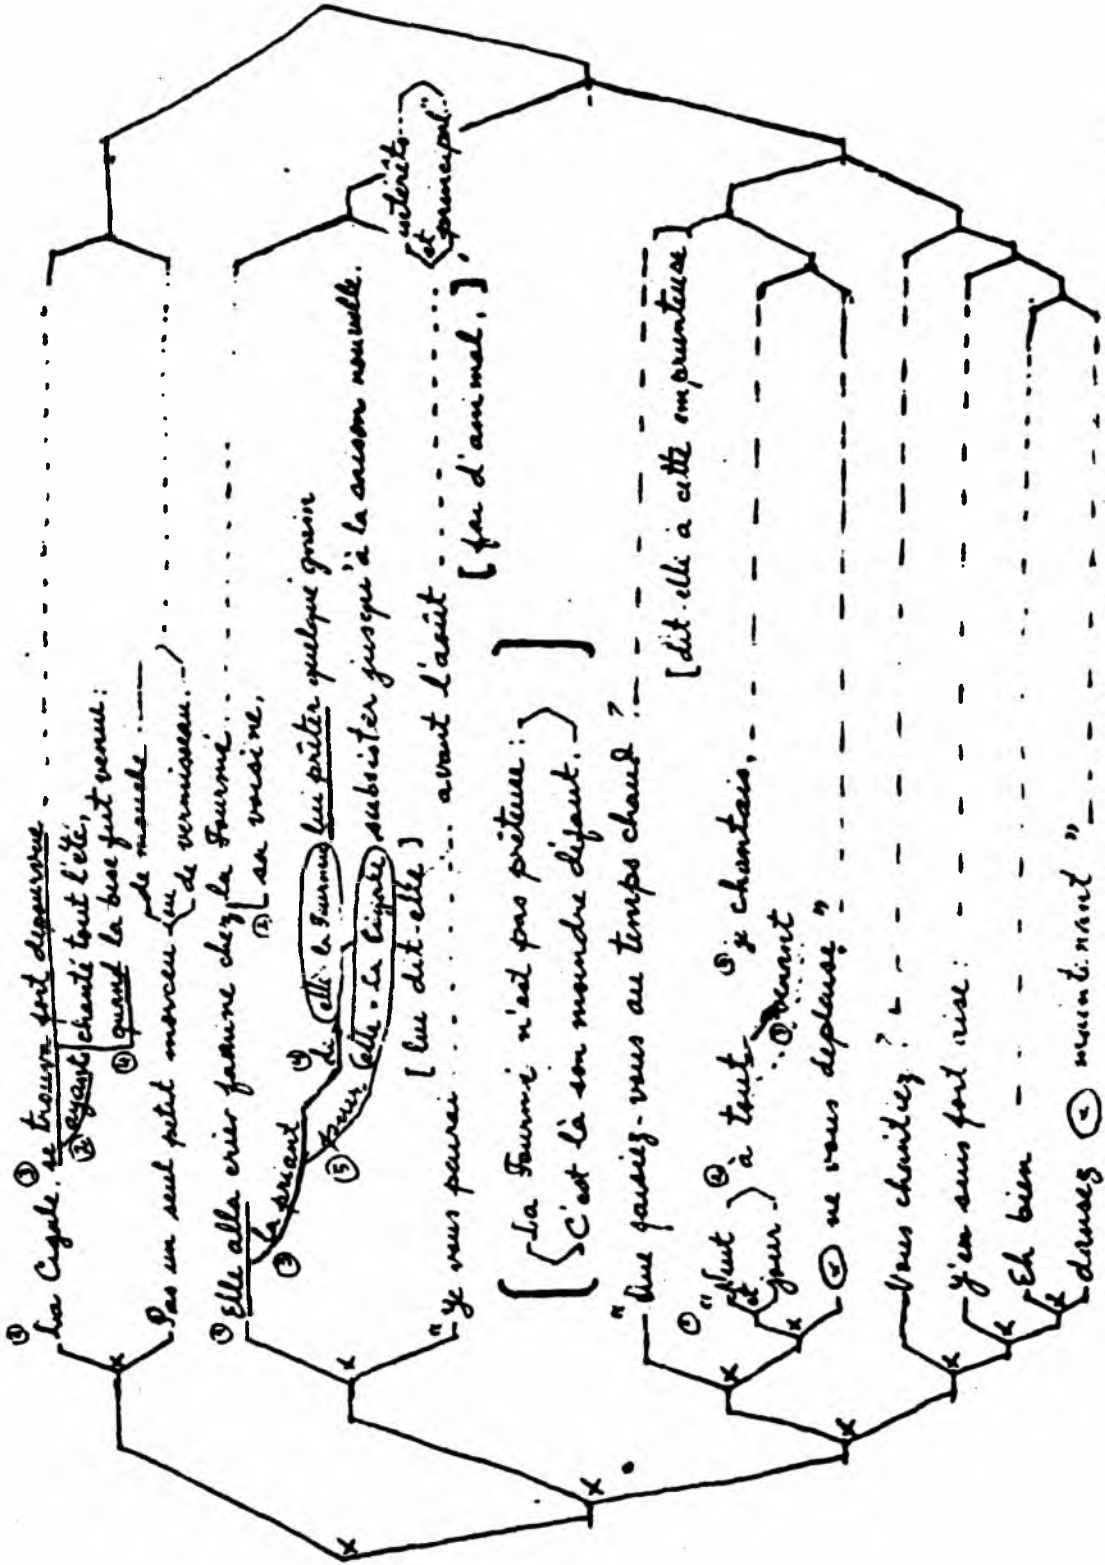 ① La Cigale, ③ se trouva fort dépourvue
② ayant chanté tout l'été,
④ quand la bise fut venue:
Pas un seul petit morceau de mouche
ou de vermisseau.
① Elle alla crier famine chez la Fourmi
② sa voisine,
③ la priant ④ de (elle la Fourmi) lui prêter quelque grain
⑤ pour (elle = la Cigale) subsister jusqu'à la saison nouvelle.
[lui dit-elle]
"je vous paierai avant l'août intérêts et principal."
[foi d'animal,]
[La Fourmi n'est pas prêteuse:
C'est là son moindre défaut.]
"Que faisiez-vous au temps chaud?
[dit-elle à cette emprunteuse]
① "Nuit et jour ② à tout ③ venant ⑤ je chantais,
x ne vous déplaise."
Vous chantiez?
j'en suis fort aise:
Eh bien
dansez x maintenant"